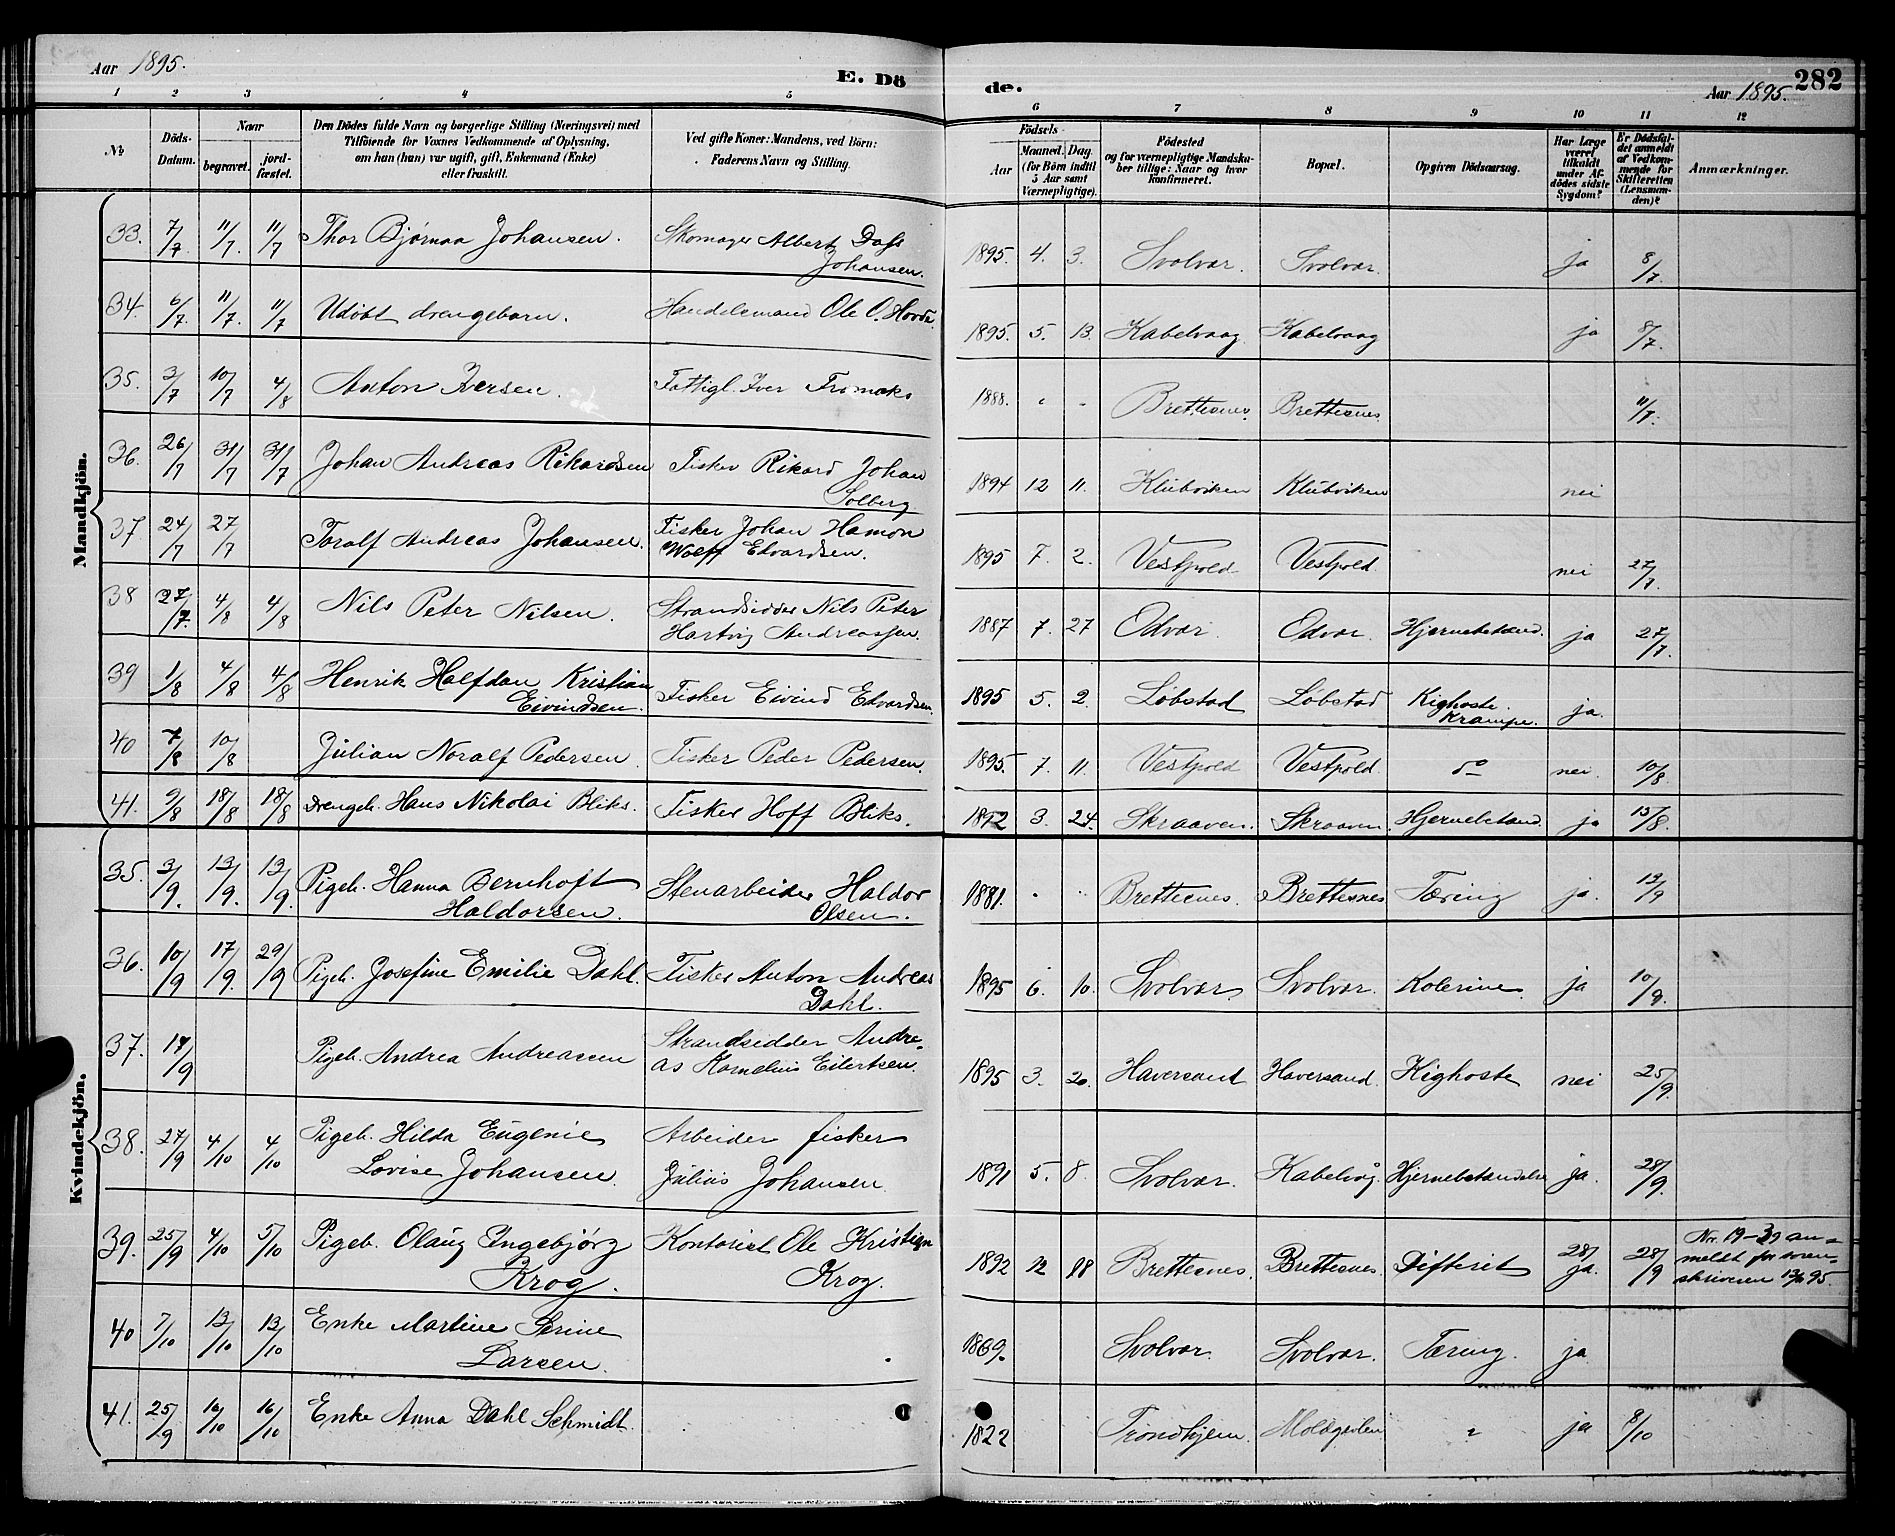 Aar 1895. E. Dö de. Aar 1895. 282
1 2 3 4 5 6 7 8 9 10 11 12
№ Döds-Datum. Naar begravet. jord-fæstet. Den Dödes fulde Navn og borgerlige Stilling (Næringsvei) med Tilföiende for Voxnes Vedkommende af Oplysning, om han (hun) var ugift, gift, Enkemand (Enke) eller fraskilt. Ved gifte Koner: Mandens, ved Börn: Faderens Navn og Stilling. Födsels- Aar Maaned. Dag (for Börn indtil 5 Aar samt Værnepligtige). Födested og for værnepligtige Mandskaber tillige: Naar og hvor konfirmeret. Bopæl. Opgiven Dödsaarsag. Har Læge været tilkaldt under Afdödes sidste Sygdom? Er Dödsfaldet anmeldt af Vedkommende for Skifteretten (Lensmanden)? Anmærkninger.
Mandkjön.
33. 7/7 11/7. 11/7 Thor Bjørnaa Johansen. Skomager Albert Dass Johansen. 1895. 4. 3. Svolvær. Svolvær. ja 8/7
34. 6/7. 11/7. 11/7 Udöbt drengebarn. Handelsmand Ole O. Hovde 1895. 5. 13. Kabelvaag Kabelvaag ja 8/7.
35. 3/7 10/7 4/8 Anton Iversen. Fattigl. Iver 1888. " " Brettesnes Brettesnes. 11/7.
36. 26/7 31/7 31/7 Johan Andreas Rikardsen Fisker Rikard Johan Solberg 1894 12 11. Klubviken Klubviken nei
37. 24/7 27/7 Toralf Andreas Johansen. Fisker Johan Hamon Wolff Edvardsen. 1895 7. 2. Vestpold Vestpold nei 27/7.
38 27/7. 4/8 4/8 Nils Peter Nilsen. Strandsidder Nils Peter Hartvig Andreassen. 1887 7. 27 Odvær. Odvær. Hjernebetænd. ja 27/7.
39 1/8 4/8 4/8 Henrik Halfdan Kristian Eivindsen. Fisker Eivind Edvardsen. 1895 5. 2. Löbstad Löbstad Kighoste. Krampe. ja.
40 7/8 10/8 Julian Noralf Pedersen. Fisker Peder Pedersen. 1895. 7. 11. Vestpold Vestpold. do nei. 10/8.
41. 9/8 18/8 18/8 Drengeb. Hans Nikolai Bliks. Fisker Hoff Bliks. 1892 3. 24. Skraaven. Skraaven Hjernebetænd. ja 15/8.
Kvindekjön.
35. 3/9. 13/9. 13/9. Pigeb. Hanna Bernhoft Haldorsen. Stenarbeider Haldor Olsen. 1881. " " Brettesnes. Brettesnes Tæring ja. 13/9
36. 10/9 17/9. 29/9 Pigeb. Josefine Emilie Dahl. Fisker Anton Andreas Dahl. 1895 6. 10. Svolvær Svolvær. Kolerine. ja 10/9.
37. 17/9 Pigeb. Andrea Andreassen Strandsidder Andre- as Kornelius Eilertsen. 1895 3. 20. Haversand Haversand. Kighoste nei 25/9.
38. 27/9 4/10 4/10 Pigeb. Hilda Eugenie Lovise Johansen. Arbeider fisker Julius Johansen. 1891 5. 8. Svolvær. Kabelvåg. Hjernebetændelse ja. 28/9.
39. 25/9 4/10 5/10 Pigeb. Olaug Ingebjörg Krog. Kontorist Ole Kristian Krog. 1892 12 18 Brettesnes. Brettesnes. Difterit 28/ ja. 28/9 Nr. 19-39 an- meldt for soren- skriveren
40 7/10 13/10 13/10 Enke Martine Serine Larsen. 1869. Svolvær. Svolvær. Tæring. ja
41. 25/9 16/10 16/10 Enke Anna Dahl Schmidt. 1822 Trondhjem. Moldgavlen " ja 9/10